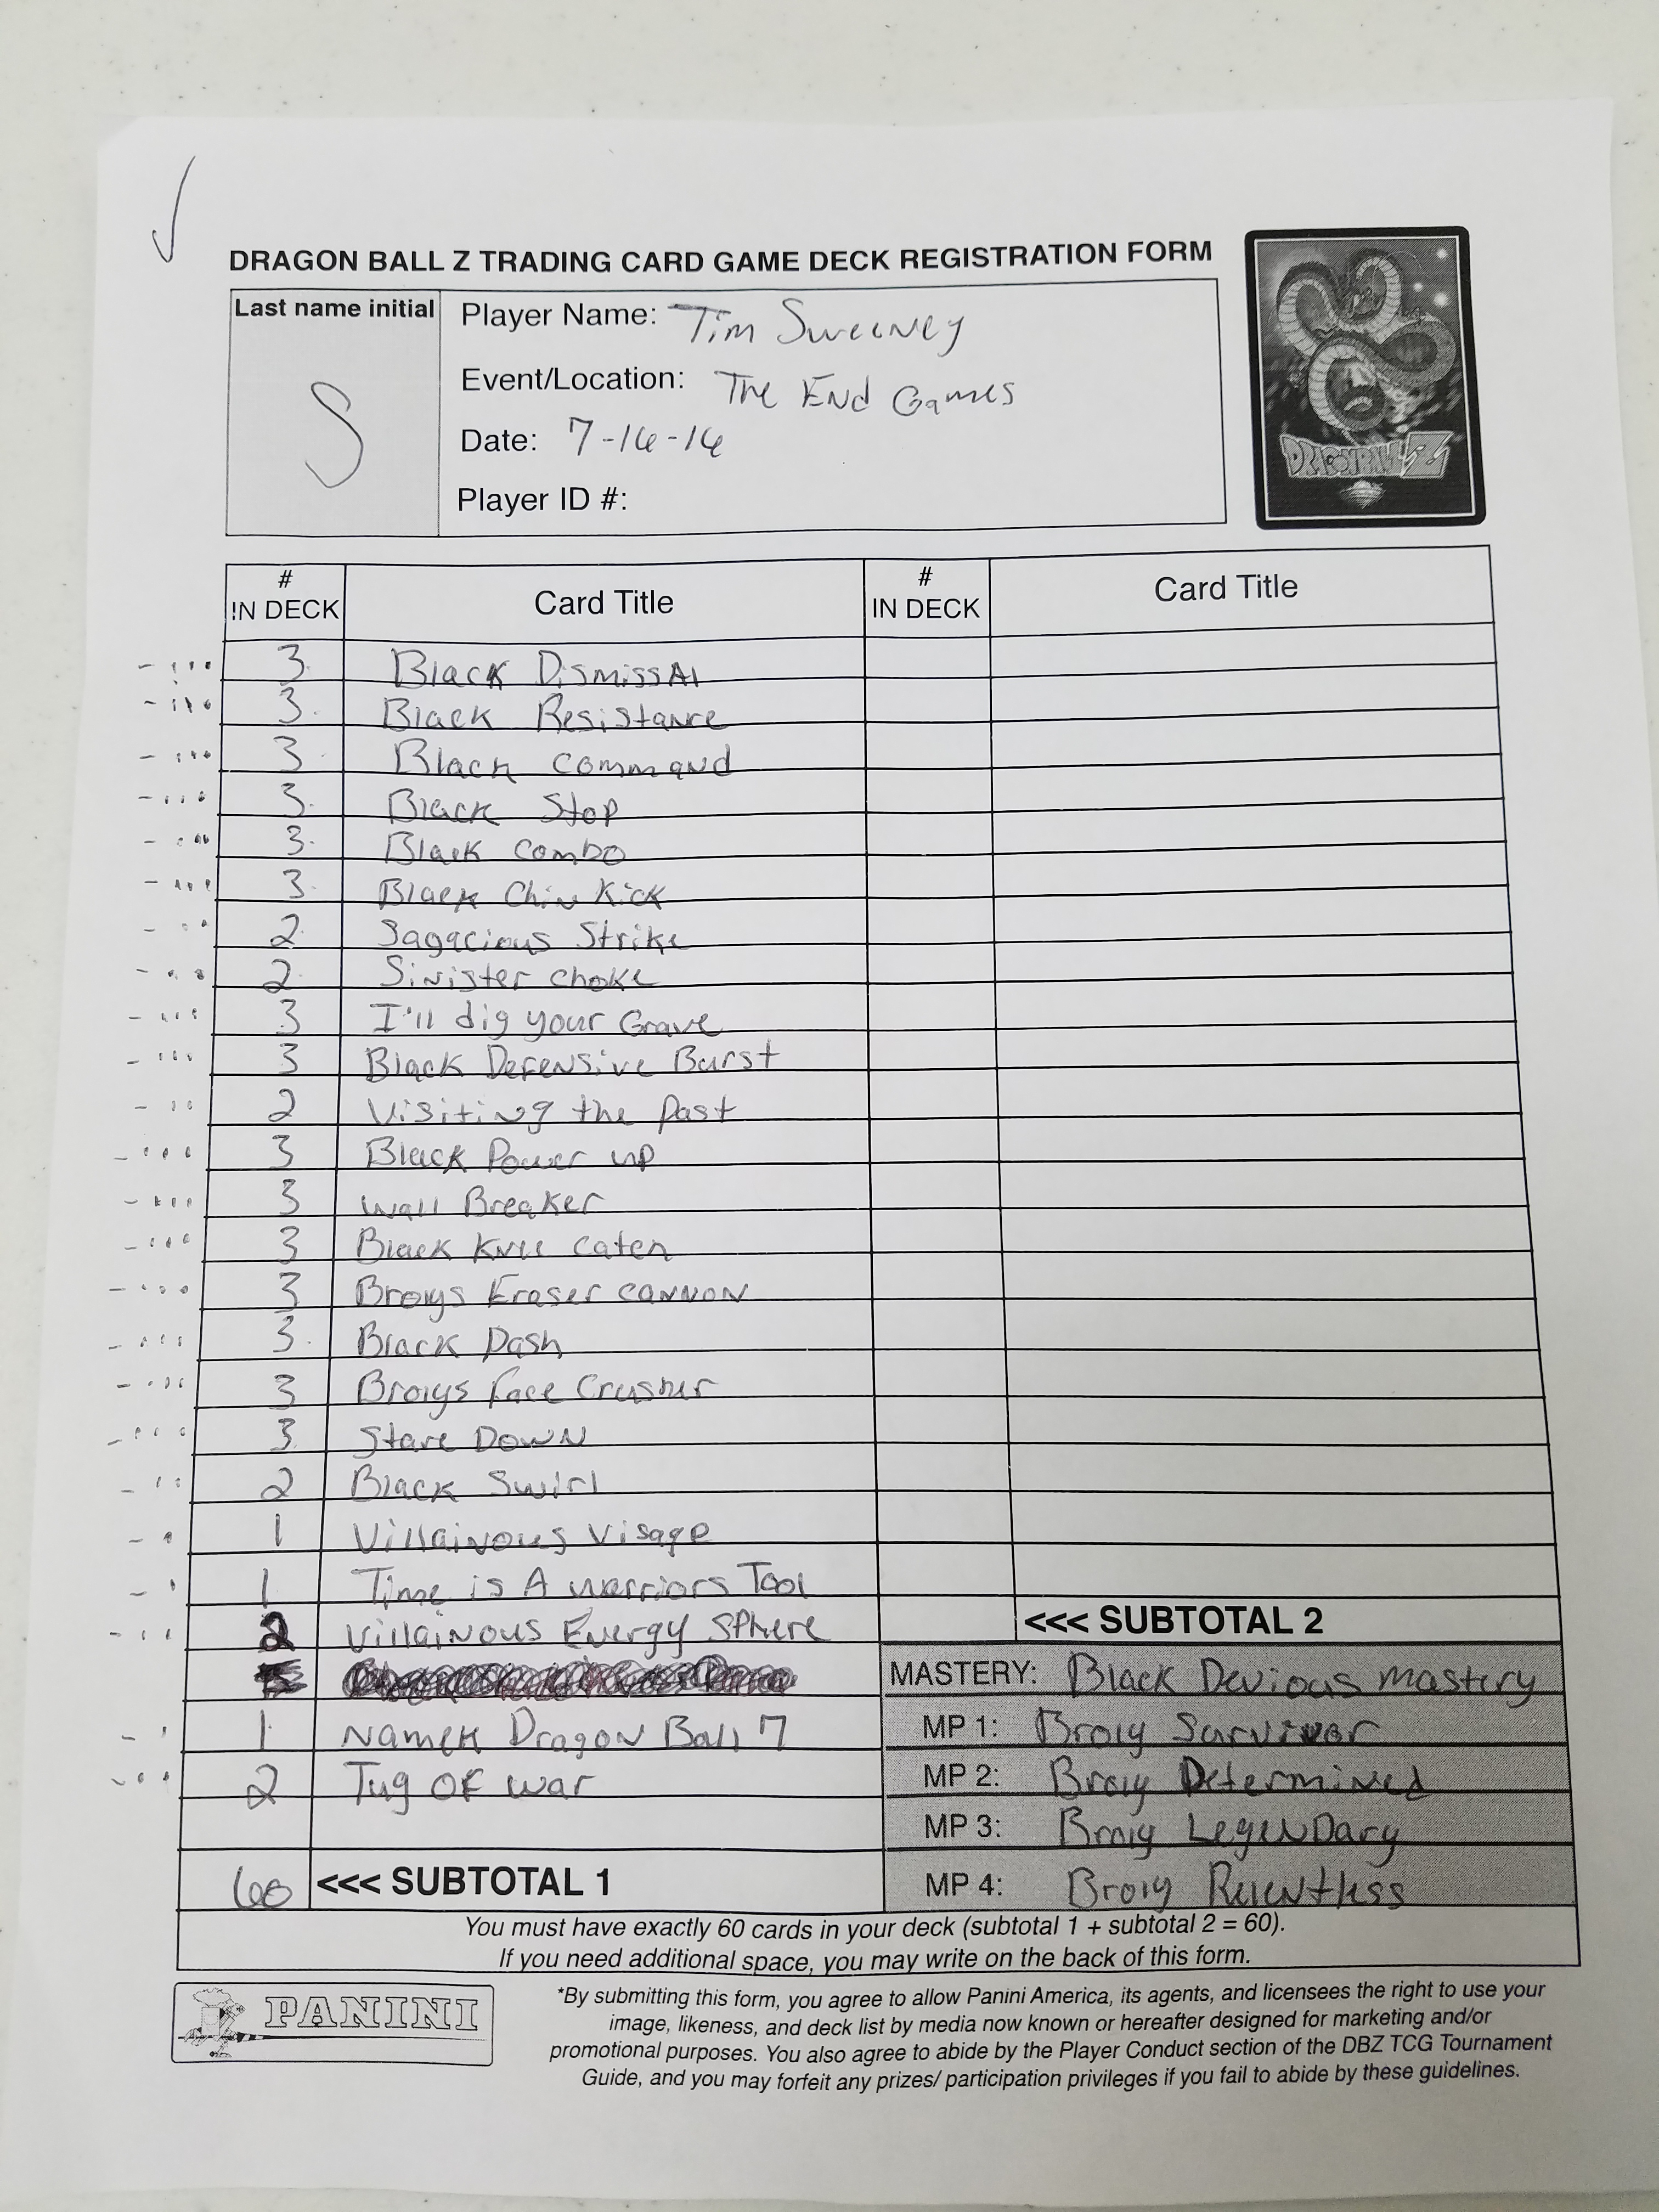 DRAGON BALL Z TRADING CARD GAME DECK REGISTRATION FORM
Last name initial
S
Player Name: Tim Sweeney
Event/Location: The End Games
Date: 7-16-16
Player ID #:
DRAGONBALL Z
# IN DECK Card Title # IN DECK Card Title
3 Black Dismissal
3 Black Resistance
3 Black Command
3 Black Stop
3 Black Combo
3 Black Chin Kick
2 Sagacious Strike
2 Sinister choke
3 I'll dig your Grave
3 Black Defensive Burst
2 Visiting the Past
3 Black Power up
3 Wall Breaker
3 Black Knee Catch
3 Brolys Eraser Cannon
3 Black Dash
3 Brolys Face Crusher
3 Stare Down
2 Black Swirl
1 Villainous Visage
1 Time is A Warriors Tool
2 Villainous Energy Sphere
1 Namek Dragon Ball 7
2 Tug of war
60 <<< SUBTOTAL 1
<<< SUBTOTAL 2
MASTERY: Black Devious mastery
MP 1: Broly Survivor
MP 2: Broly Determined
MP 3: Broly Legendary
MP 4: Broly Relentless
You must have exactly 60 cards in your deck (subtotal 1 + subtotal 2 = 60).
If you need additional space, you may write on the back of this form.
PANINI
*By submitting this form, you agree to allow Panini America, its agents, and licensees the right to use your
image, likeness, and deck list by media now known or hereafter designed for marketing and/or
promotional purposes. You also agree to abide by the Player Conduct section of the DBZ TCG Tournament
Guide, and you may forfeit any prizes/ participation privileges if you fail to abide by these guidelines.